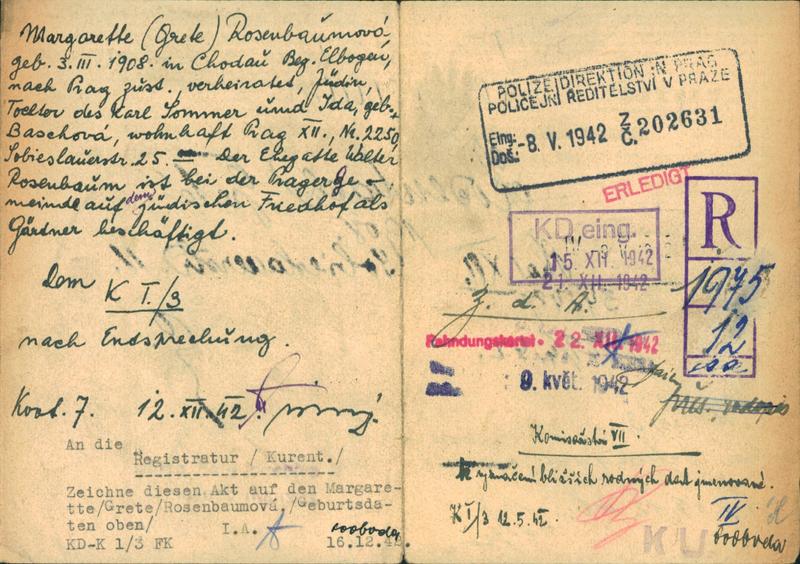 Margarette (Grete) Rosenbaumová,
geb. 3. III. 1908 in Chodau Bez. Elbogen,
nach Prag zust., verheiratet, Jüdin,
Tochter des Karl Sommer und Ida, geb.
Baschová, wohnhaft Prag XII., Nr. 2250,
Sobieslauerstr. 25. — Der Ehegatte Walter
Rosenbaum ist bei der Prager Ge-
meinde auf dem jüdischen Friedhof als
Gärtner beschäftigt.
Dem
K I./3
nach Entsprechung.
12. XII. 42.
An die
Registratur / Kurent./
Zeichne diesen Akt auf den Margare-
tte/Grete/Rosenbaumová,/Geburtsda-
ten oben/
I.A.
KD-K 1/3 FK
16.12.42.
POLIZEIDIREKTION IN PRAG
POLICEJNÍ ŘEDITELSTVÍ V PRAZE
Eing.:
Doš.:
-8. V. 1942
Z
Č. 202631
ERLEDIGT
KD eing.
15. XII. 1942
21. XII. 1942
R
1975
12
Z. d. A.
Fahndungskartei • 22. XII. 1942
9. květ. 1942
Komisařství VII.
K vyznačení bližších rodných dat jmenované.
K I/3 12.5.42.
IV
KU